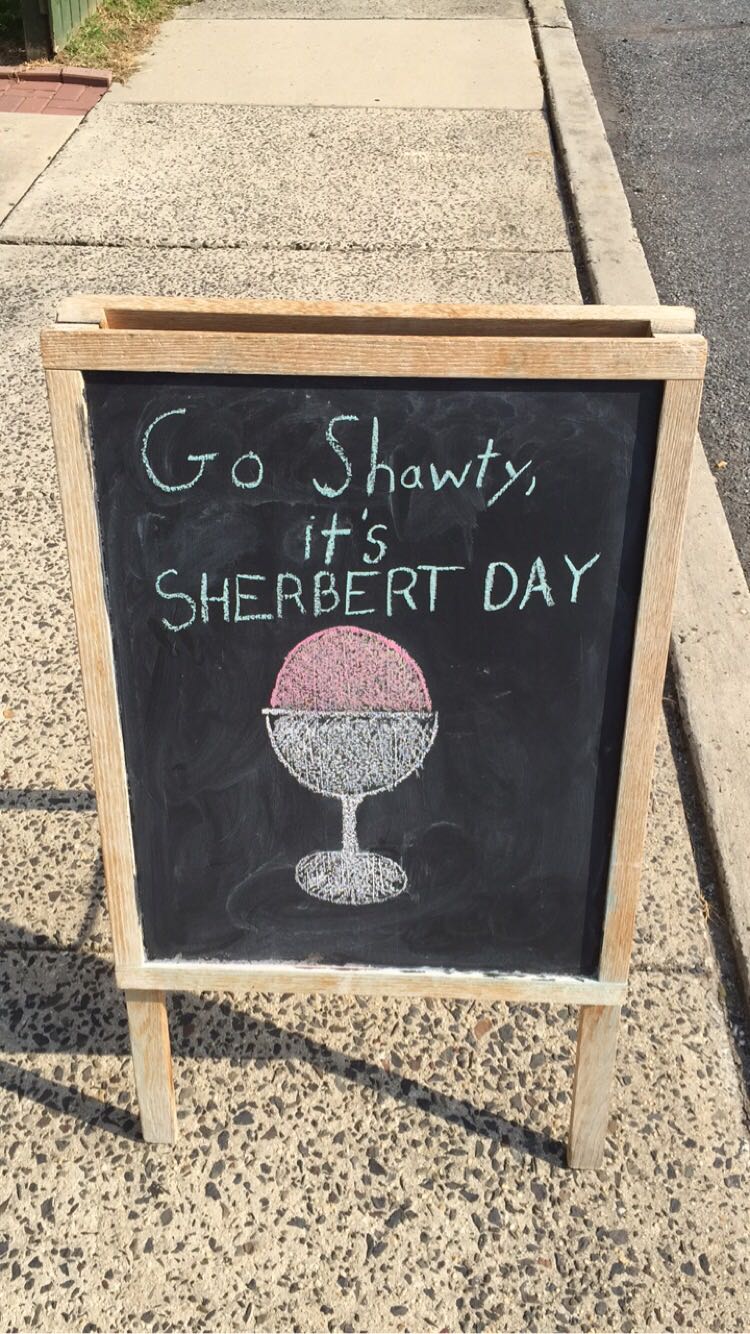 Go Shawty,
it's
SHERBERT DAY